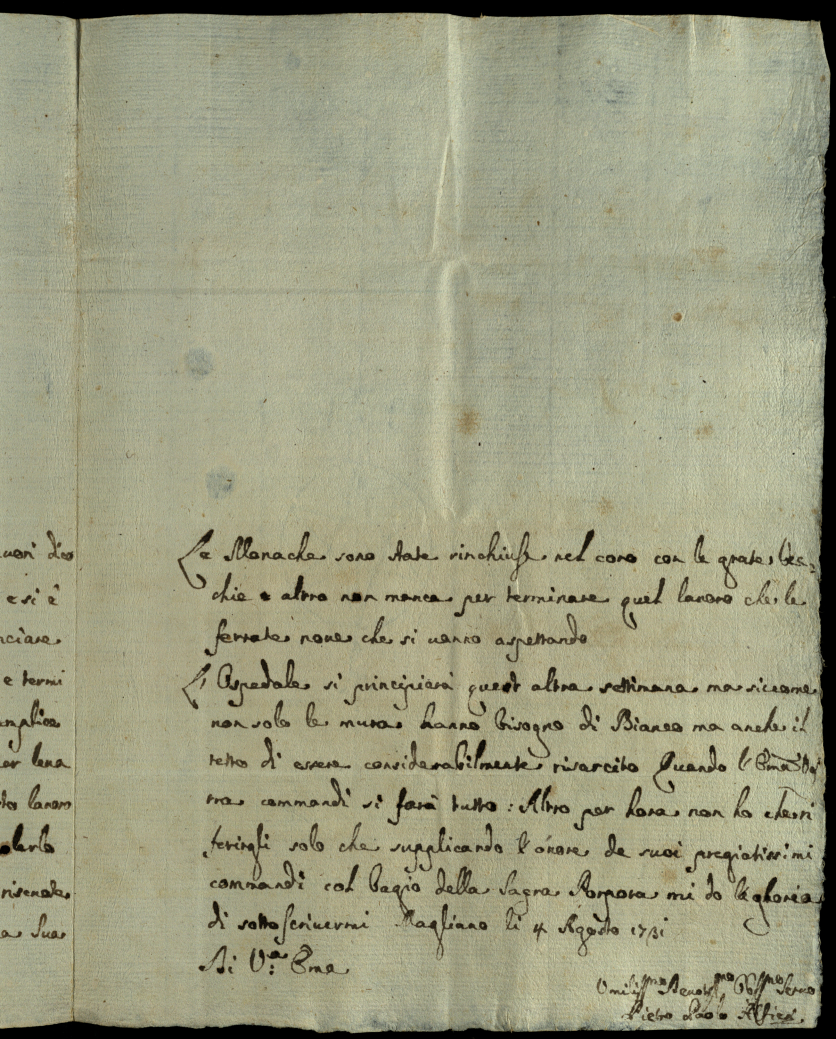 uori dico
e si è
nciare
e termi
amplice
er lena
to lavoro
olerlo
risende
a Sua
Le Monache sono state rinchiuse nel coro con le grate vec=
chie e altro non manca per terminare quel lavoro che le
ferrate nove che si vanno aspettando
L'Ospedale si principiarà quest altra settimana ma siccome
non solo le mura hanno bisogno di Bianco ma anche il
tetto di essere considerabilmente risarcito Quando l'Emza Vos
tra commandi si farà tutto: Altro per hora non ho che ri
ferirgli solo che supplicando l'onore de suoi pregiatissimi
commandi col bagio della Sagra Porpora mi do la gloria
di sottoscrivermi Magliano li 4 Agosto 1731
Di V:a Ema
Umiliss.mo Devotiss.mo Obb.mo Servo
Pietro Paolo Alfieri